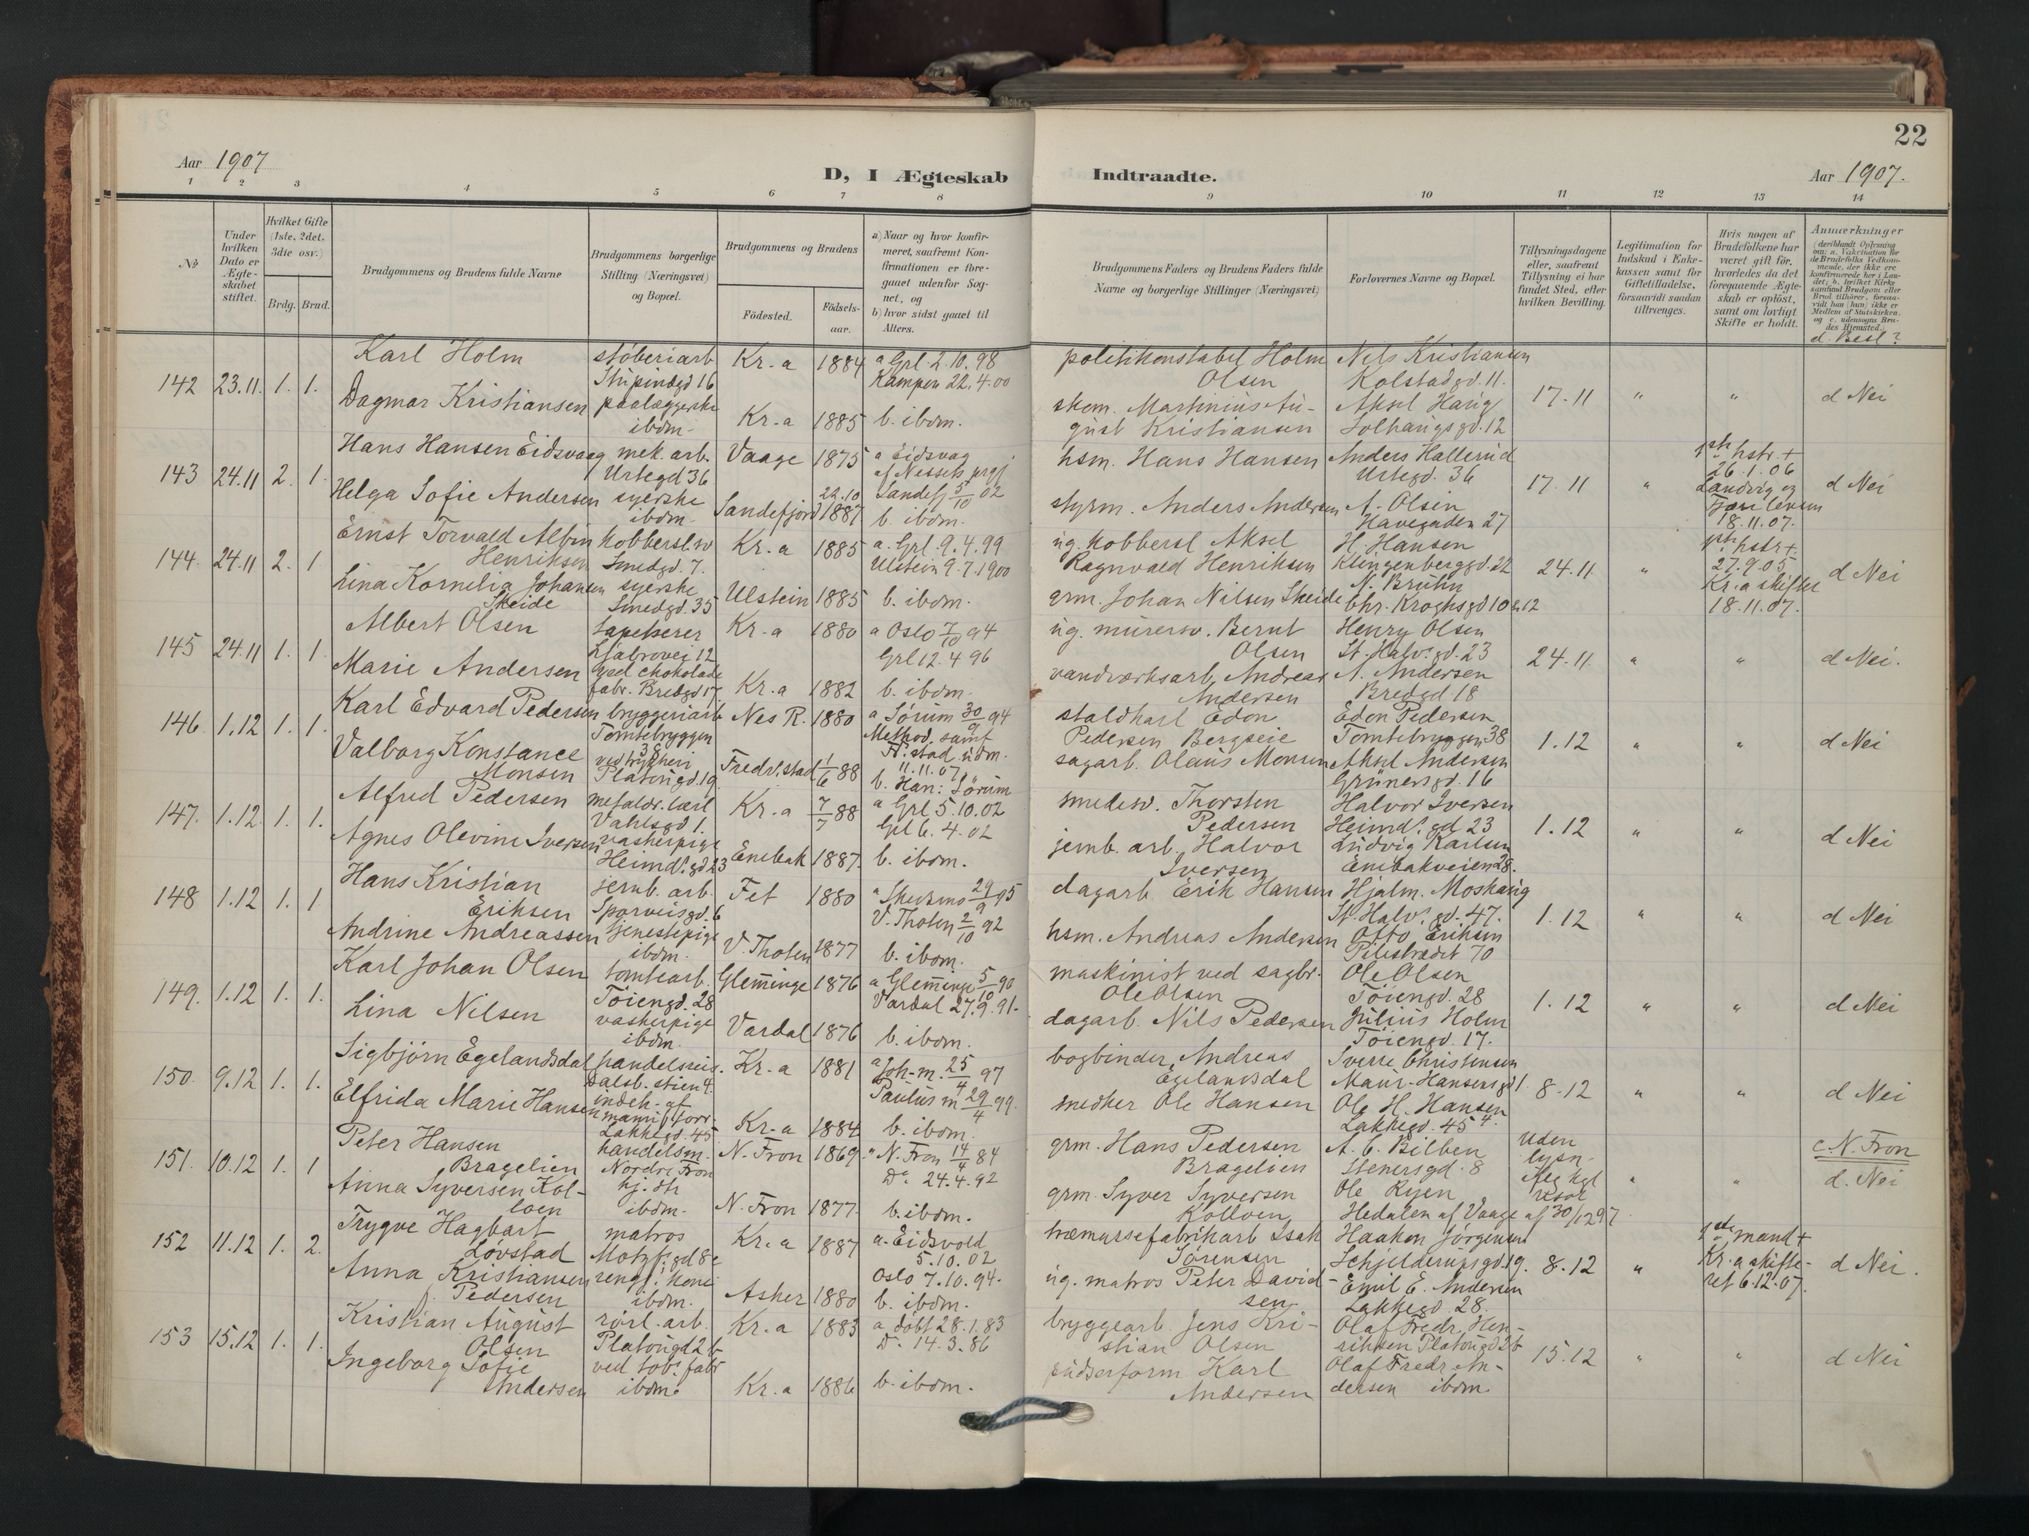 22
Aar 1907
D, I Ægteskab Indtraadte.
Aar 1907.
1 2 3 4 5 6 7 8 9 10 11 12 13 14
No
Under hvilken Dato er Ægteskabet stiftet.
Hvilket Gifte (1ste, 2det, 3die osv.)
Brdg. Brud.
Brudgommens og Brudens fulde Navne
Brudgommens borgerlige Stilling (Næringsvei) og Bopæl.
Brudgommens og Brudens
Fødested.
Fødsels-aar.
a) Naar og hvor konfirmeret, saafremt Konfirmationen er foregaaet udenfor Sognet, og
b) hvor sidst gaaet til Alters.
Brudgommens Faders og Brudens Faders fulde Navne og borgerlige Stillinger (Næringsvei)
Forlovernes Navne og Bopæl.
Tillysningsdagene eller, saafremt Tillysning ei har fundet Sted, efter hvilken Bevilling.
Legitimation for Indskud i Enkekassen samt for Giftetilladelse, forsaavidt saadan tiltrænges.
Hvis nogen af Brudefolkene har været gift før, hvorledes da det foregaaende Ægteskab er opløst, samt om lovligt Skifte er holdt.
Anmærkninger
d. Besl?
142 23.11 1. 1.
Karl Holm
støberiarb
Stupinsgd 16
Kr.a 1884
a Grl 2.10.98
Kampen 22.4.00
politikonstabel Holm
Olsen
Nils Kristiansen
Kolstadgd. 11.
17.11 " " d Nei
Dagmar Kristiansen
paalæggerske
ibdm.
Kr.a 1885
b. ibdm.
skom. Martinius Au-
gust Kristiansen
Aksel Haug
Solhaugsgd. 12
143 24.11 2. 1.
Hans Hansen Eidsvaag
mek. arb.
Urtegd 36
Vaage 1875
a Eidsvag
af Nessets prgj
hsm. Hans Hansen
Anders Hallerud
Urtegd. 36
17.11 "
1ste hstr +
26.1.06
18.11.07.
d Nei
Helga Sofie Andersen
syerske
ibdm.
Sandefjord 22.10 1887
Sandefj 5/10 02
b. ibdm.
styrm. Anders Andersen
A. Olsen
Havegaden 27
144 24.11 2. 1
Ernst Torvald Albin
Henriksen
kobbersl.sv
Smedgd. 7.
Kr.a 1885
a. Grl 9.4.99
Ulstein 9.7.1900
ug. kobbersl Aksel
Ragnvald Henriksen
H. Hansen
Klingenberggd. 22
24.11 "
1ste hstr +
27.9.05
Kr.a skifter
18.11.07.
d Nei
Lina Kornelia Johansen
Skeide
syerske
Smedgd. 35
Ulstein 1885
b. ibdm.
grm. Johan Nilsen Skeide
N. Bruhn
Chr. Kroghsgd 10
145 24.11 1. 1.
Albert Olsen
tapetserer
Ljabrovei 12
Kr.a 1880
a Oslo 7/10 94
Grl 12.4 96
ug. murersv. Bernt
Olsen
Henry Olsen
St. Halvs.gd. 23
24.11. " " d Nei.
Marie Andersen
ved chokolade
fabr. Bredgd 17
Kr.a 1882
b. ibdm.
vandværksarb. Andreas
Andersen
A. Andersen
Bredgd 18
146 1.12 1. 1.
Karl Edvard Pedersen
bryggeriarb
Tomtebryggen
38
Nes R. 1880
a Sørum 30/9 94
staldkarl Edon
Pedersen Bergseie
Edon Pedersen
Tomtebryggen 38
1.12 " " d Nei
Valborg Konstance
Monsen
ved trykkeri
Platousgd. 19
Fredr.stad 1/6 88
Method. samf
Fr.stad udm.
11.11.07
b. Han: Sørum
sagarb. Olaus Monsen
Aksel Andersen
Grünersgd. 16
147. 1.12. 1. 1.
Alfred Pedersen
metaldr. lærl
Vahlsgd 1.
Kr.a 7/7 88
a Grl 5.10.02
Grl 6.4.02
smedesv. Thorsten
Pedersen
Halvor Iversen
Heimd.gd 23
1.12 " " d Nei
Agnes Olevine Iversen
vaskepige
Heimd.gd 23
Enebak 1887.
b. ibdm.
jernb. arb. Halvor
Iversen
Ludvig Karlsen
Enebakveien 28.
148 1.12 1. 1
Hans Kristian
Eriksen
jernb. arb.
Sporveisgd. 6
Fet 1880
a Skedsmo 29/9 95
V. Thoten 2/10 92
dagarb Erik Hansen
Hjalm. Moshaug
St. Halvs.gd. 47.
1.12 " " d Nei
Andrine Andreassen
tjenestepige
ibdm.
V. Thoten 1877
b. ibdm.
hsm. Andreas Andersen
Otto Eriksen
Pilestrædet 70
149. 1.12 1. 1.
Karl Johan Olsen
tomtearb.
Tøiengd. 28
Glemminge 1876
a Glemminge 5/10 90
Vardal 27.9.91.
maskinist ved sagbr.
Ole Olsen
Ole Olsen
Tøiengd. 28
1.12 " " d Nei
Lina Nilsen
vaskepige
ibdm.
Vardal 1876
b. ibdm.
dagarb. Nils Pedersen
Julius Holm
Tøiengd. 17.
150. 9.12 1. 1.
Sigbjørn Egelandsdal
handelsreis.
Dalsb. stien 4.
Kr.a 1881
a Joh-m. 25/4 97
Paulus m 29/4 99.
bogbinder Andreas
Egelandsdal
Sverre Christensen
Maur. Hansensgd 1.
8.12 " " d Nei
Elfrida Marie Hansen
indeh. af
manuf. forr.
Lakkegd. 45
Kr.a 1884
b. ibdm.
smedker Ole Hansen
Ole H. Hansen
Lakkegd. 45 4.
151. 10.12 1. 1
Peter Hansen
Bragelien
handelsm.
Nordre Fron
N. Fron 1869.
a N. Fron 14/4 84
Do 24.4.92
grm. Hans Pedersen
Bragelien
A. C. Bilben
Stenersgd. 8
uden
lysn.
" "
c N. Fron
d. Nei
Anna Syversen Kol-
loen
ibdm.
N. Fron 1877.
b. ibdm.
grm. Syver Syversen
Kolloen
Ole Ryen
Hedalen af Vaage
af 30/12 97
152 11.12 1. 2.
Trygve Hagbart
Løvstad
matros
Motzf.gd 8c
Kr.a 1887
a. Eidsvold
5.10.02
træmassefabrikarb Isak
Sørensen
Haakon Jørgensen
Schjelderupsgd 19.
8.12 "
1ste mand +
Kr.a skifte-
ret 6.12.07.
d Nei.
Anna Kristiansen
f. Pedersen
rengj. kone
ibdm.
Asker 1880
Oslo 7.10.94.
b. ibdm.
ug. matros Peter David-
sen.
Emil E. Andersen
Lakkegd. 28.
153 15.12 1. 1.
Kristian August
Olsen
rørl. arb.
Platougd 2 b
Kr.a 1883
a døbt 28.1.83
Do. 14.3.86
bryggearb. Jens Kri-
stian Olsen
Olaf Fredr. Hen-
riksen Platougd 2b
15.12 " " d Nei
Ingeborg Sofie
Andersen
ved tob. fabr
ibdm.
Kr.a 1886
b. ibdm.
pudserform Karl
Andersen
Olaf Fredr An-
dersen ibdm.